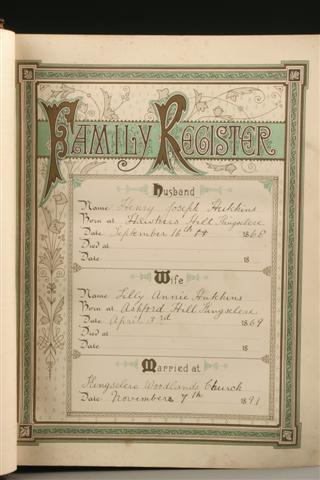 FAMILY REGISTER
Husband
Name Henry Joseph Huikins
Born at Hill Kingsclere
Date September 16th 1868
Died at
Date 18
Wife
Name Lilly Annie Hukkins
Born at Ashford Hill Kingsclere
Date April 3rd 1869
Died at
Date 18
Married at
Kingsclere Woodlands Church
Date November 7th 1891